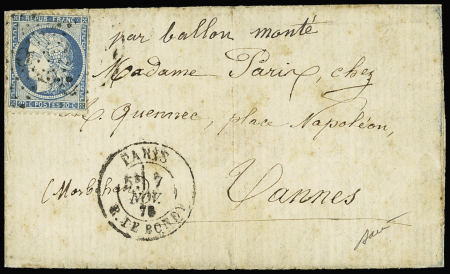 REPUB. FRANC.
par ballon monté
Madame Paris, chez
POSTES 20 C
Quennec, place Napoléon,
PARIS
5E 7
(Morbihan) Vannes
NOV.
70
R. DE BONDY